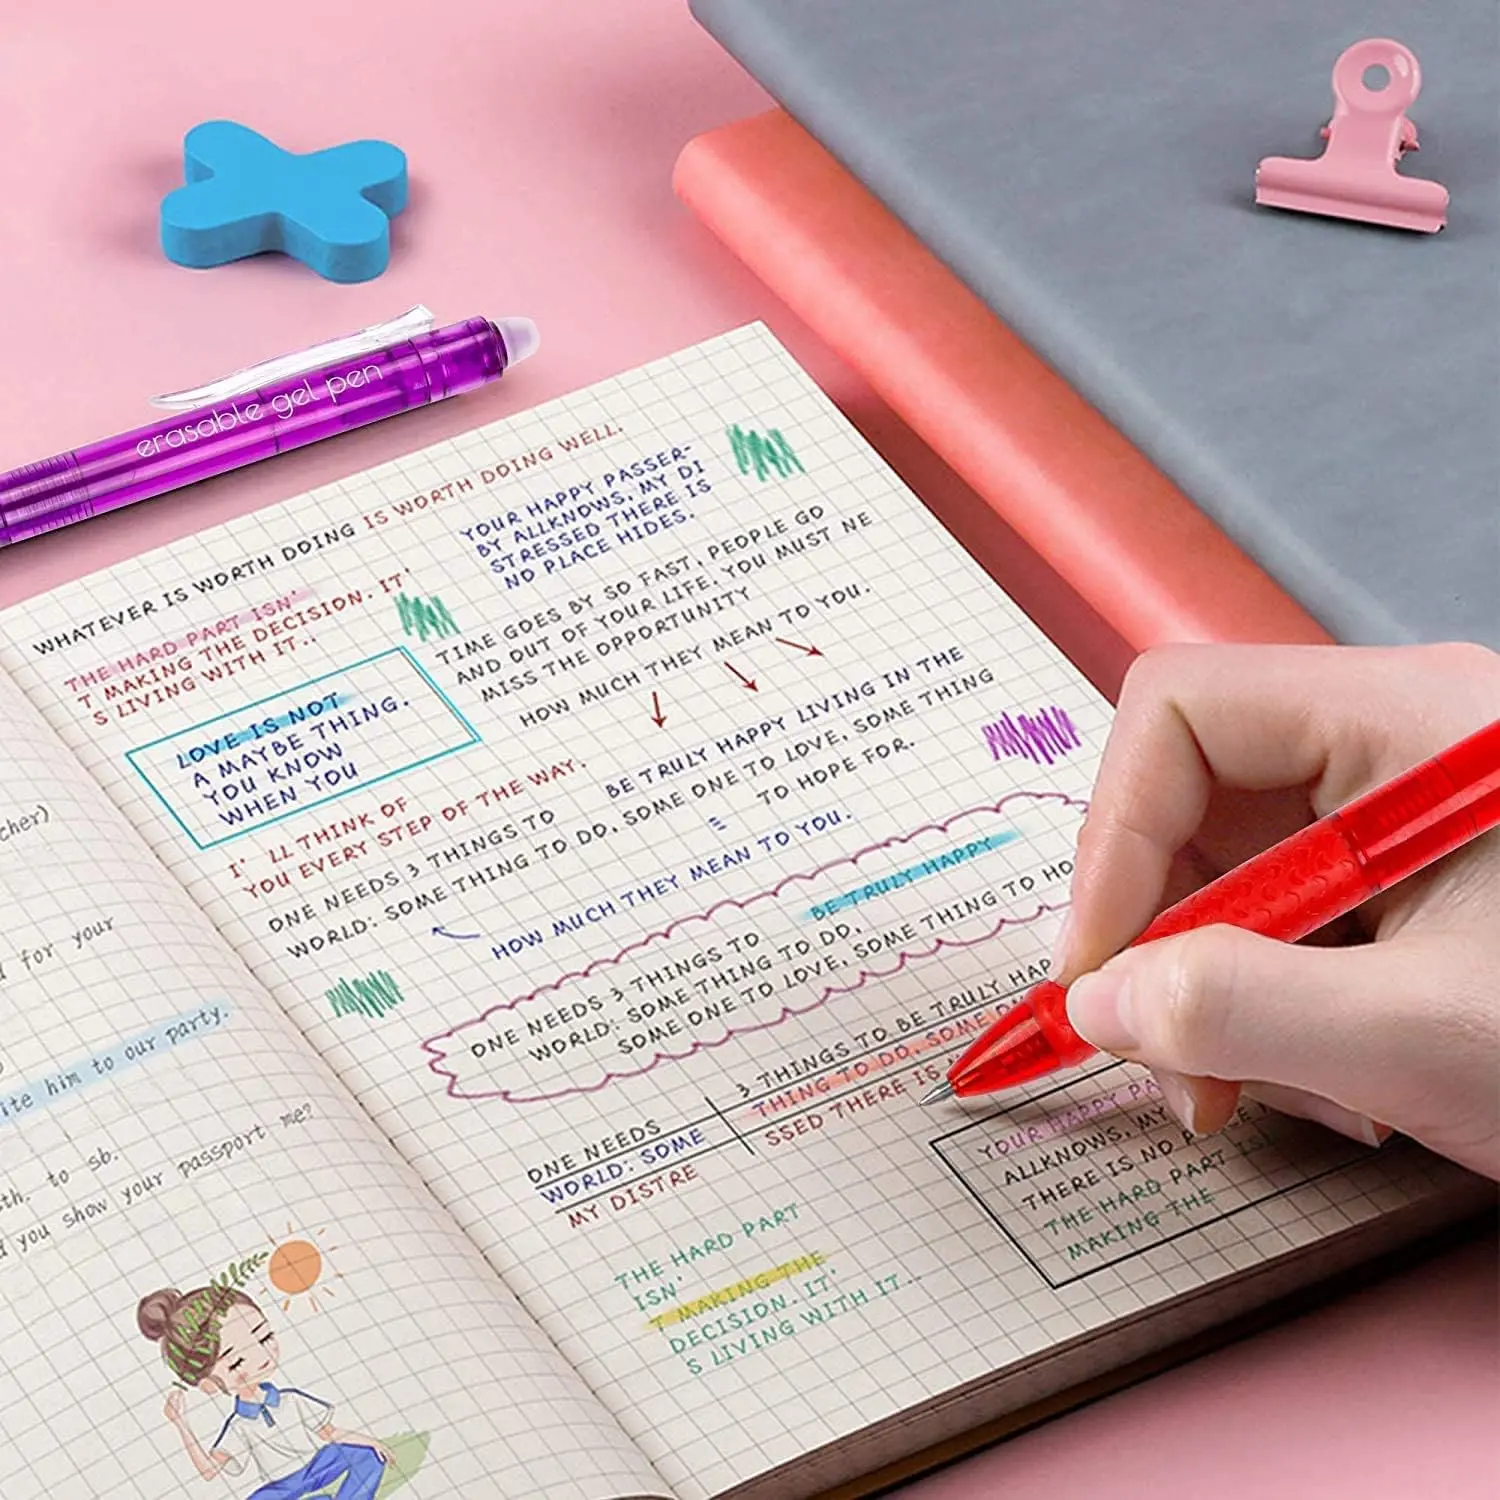 erasable gel pen
WHATEVER IS WORTH DOING IS WORTH DOING WELL.
THE HARD PART ISN'
T MAKING THE DECISION. IT'
S LIVING WITH IT..
YOUR HAPPY PASSER-
BY ALLKNOWS, MY DI
STRESSED THERE IS
NO PLACE HIDES.
TIME GOES BY SO FAST, PEOPLE GO
AND OUT OF YOUR LIFE. YOU MUST NE
MISS THE OPPORTUNITY
HOW MUCH THEY MEAN TO YOU.
LOVE IS NOT
A MAYBE THING.
YOU KNOW
WHEN YOU
I' LL THINK OF
YOU EVERY STEP OF THE WAY.
BE TRULY HAPPY LIVING IN THE
ONE NEEDS 3 THINGS TO
WORLD: SOME THING TO DO, SOME ONE TO LOVE, SOME THING
TO HOPE FOR.
HOW MUCH THEY MEAN TO YOU.
BE TRULY HAPPY
ONE NEEDS 3 THINGS TO
WORLD: SOME THING TO DO,
SOME ONE TO LOVE, SOME THING TO HO
3 THINGS TO BE TRULY HAP
ONE NEEDS
THING TO DO, SOME
WORLD: SOME
SSED THERE IS
MY DISTRE
YOUR HAPPY PA
ALLKNOWS, MY
THERE IS NO
THE HARD PART IS
MAKING THE
THE HARD PART
ISN'
T MAKING THE
DECISION. IT'
S LIVING WITH IT...
cher)
for your
ite him to our party.
th. to sb.
d you show your passport me?